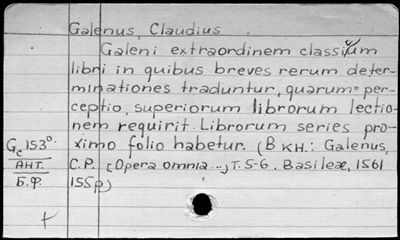 Galenus, Claudius
Galeni extraordinem classium
libri in quibus breves rerum deter-
minationes traduntur, quarum per-
ceptio, superiorum librorum lectio-
nem requirit. Librorum series pro-
ximo folio habetur. (В кн.: Galenus,
C.P. [Opera omnia...], T. 5-6. Basileæ, 1561
155p)
Gc 153°
АНТ.
Б.Ф.